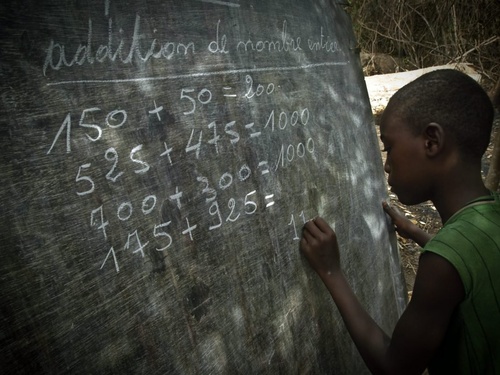 addition de nombre entier
150 + 50 = 200
525 + 475 = 1000
700 + 300 = 1000
175 + 925 = 11